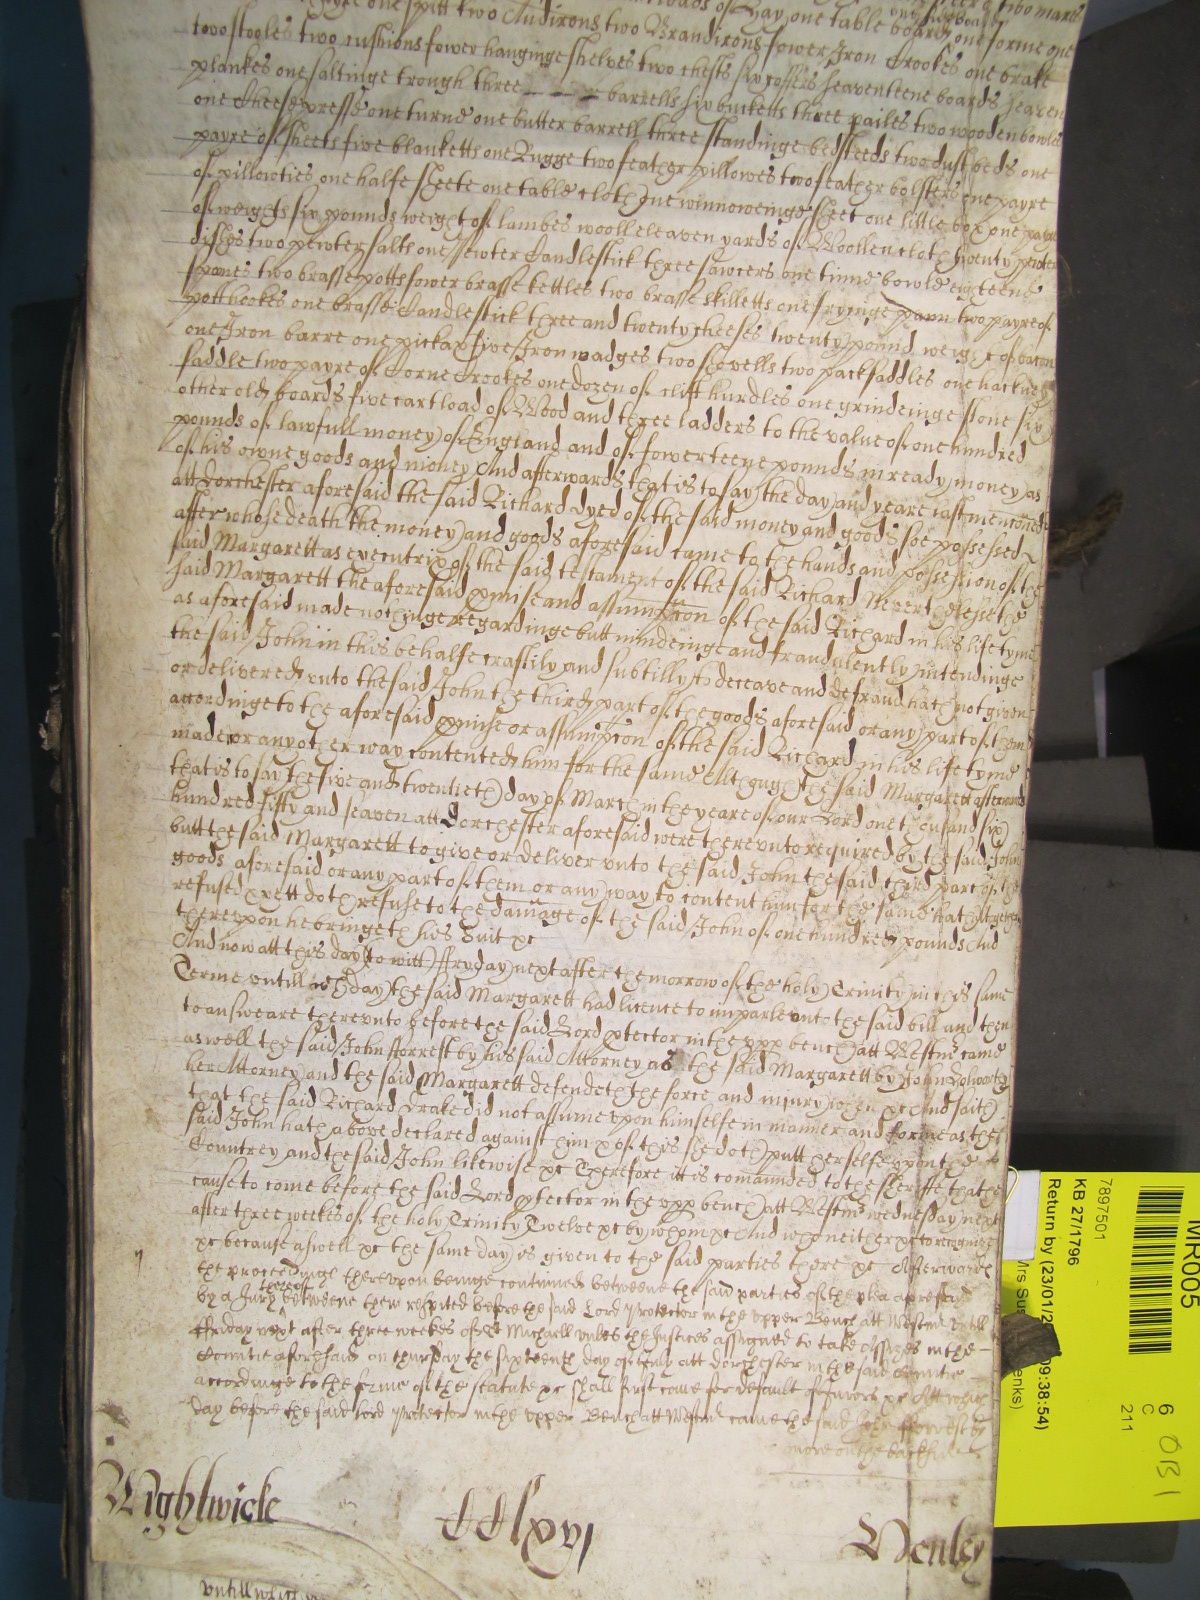 one spitt two Andirons two Brandirons fower Iron Crookes one brake
two stooles two cushions fower hanginge shelves two chests six coffers seaventeene boards seaven
plankes one saltinge trough three barrells six bucketts three pailes two wooden bowles
one Cheese presse one turne one butter barrell three standinge bedsteeds two dust beds one
payre of sheets five blanketts one Rugge two feather pillowes two feather bolsters one payre
of pillowties one halfe sheete one table cloth one winnoweinge sheet one little box one payre
of weights six pounds weight of lambes wooll eleaven yards of Woollen cloth twenty pewter
dishes two pewter salts one pewter Candlestick three sawcers one tinne bowle eighteene
spones two brasse potts fower brasse kettles two brasse skilletts one fryinge pann two payre of
potthookes one brasse Candlestick three and twenty cheeses twenty pound weight of bacon
one Iron barre one pickax five Iron wadges two showells two packsaddles one hackney
saddle two payre of Corne Crookes one dozen of clift hurdles one grindeinge stone six
other old boards five cart load of Wood and three ladders to the value of one hundred
pounds of lawfull money of England and of fowerteene pounds in ready money as
of his owne goods and money And afterwards that is to say the day and yeare last mencioned
att Dorchester aforesaid the said Richard dyed of the said money and goods soe possessed
after whose death the money and goods aforesaid came to the hands and possession of the
said Margarett as executrix of the said testament of the said Richard Neverthelesse the
said Margarett the aforesaid pmise and assumpcon of the said Richard in his life tyme
as aforesaid made nothinge regardinge butt mindeinge and fraudulently intendinge
the said John in this behalfe craftily and subtilly to deceave and defraud hath not given
or delivered unto the said John the third part of the goods aforesaid or any part of them
accordinge to the aforesaid pmise or assumpcon of the said Richard in his life tyme
made or any other way contented him for the same Although the said Margarett afterward
that is to say the five and twentieth day of March in the yeare of our Lord one thousand six
hundred fifty and seaven att Dorchester aforesaid were thereunto required by the said John
butt the said Margarett to give or deliver unto the said John the said third part of the
goods aforesaid or any part of them or any way to content him for the same hath
refused & yett doth refuse to the damage of the said John of one hundred pounds And
thereupon he bringeth his suit &c
And now att this day (to witt) ffryday next after the morrow of the holy Trinity in this same
Terme untill wch day the said Margarett had licence to imparle unto the said bill and then
to answeare thereunto before the said Lord ptector in the upp bench att Westmr came
as well the said John fforrest by his said Attorney as the said Margarett by John
her Attorney and the said Margarett defendeth the force and injury when &c And saith
that the said Richard Drake did not assume upon himselfe in manner and forme as the
said John hath above declared against him & of this she doth putt herselfe upon the
Countrey and the said John likewise &c Therefore itt is comaunded to the sheriffe that he
cause to come before the said Lord ptector in the upp bench att Westmr wednesday next
after three weekes of the holy Trinity Twelve &c by whom &c And who neither &c to recognize
&c because aswell &c the same day is given to the said parties there &c Afterwards
the proceedings thereupon beinge continued betweene the said parties of the plea aforesaid
by a Jury thereof betweene them respited before the said Lord Protector in the upper Bench att Westmr untill
ffriday next after three weekes of St Michaell unles the Justices assigned to take assizes in the
Countie aforesaid on thursday the sixteenth day of July att Dorchester in the said Countie
accordinge to the forme of the statute &c shall first come for default of Jurors &c Att which
day before the said Lord Protector in the upper Bench att Westmr came the said John fforrest by
more on the backside
Wightwicke CClxvj Henley
untill which
MR005
7897501
KB 27/1796
Return by (23/01/2 09:38:54)
Mrs Sus enks)
6
C
211
OB1